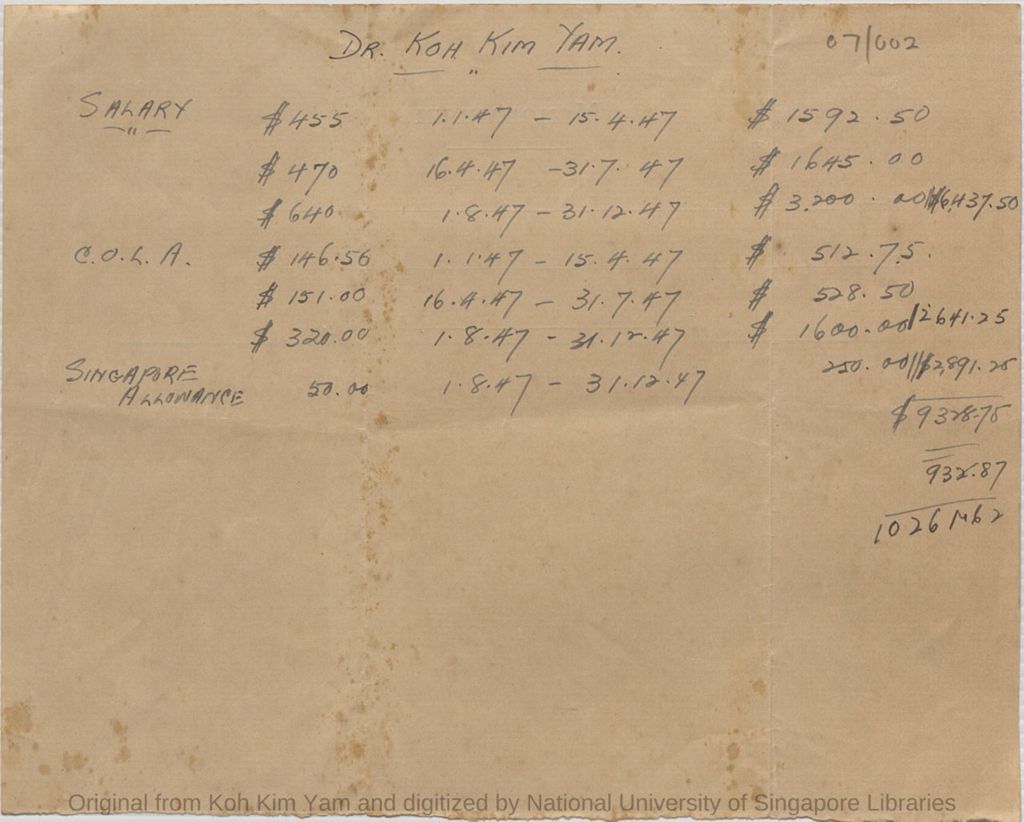 DR. KOH KIM YAM. 07/002
SALARY $455 1.1.47 - 15.4.47 $ 1592.50
$ 470 16.4.47 - 31.7.47 $ 1645.00
$ 640 1.8.47 - 31.12.47 $ 3,200.00 $6,437.50
C.O.L.A. $ 146.50 1.1.47 - 15.4.47 $ 512.75.
$ 151.00 16.4.47 - 31.7.47 $ 528.50
$ 320.00 1.8.47 - 31.12.47 $ 1600.00 2641.25
SINGAPORE
ALLOWANCE 50.00 1.8.47 - 31.12.47 250.00 $2,891.25
$ 9328.75
932.87
10261.62
Original from Koh Kim Yam and digitized by National University of Singapore Libraries